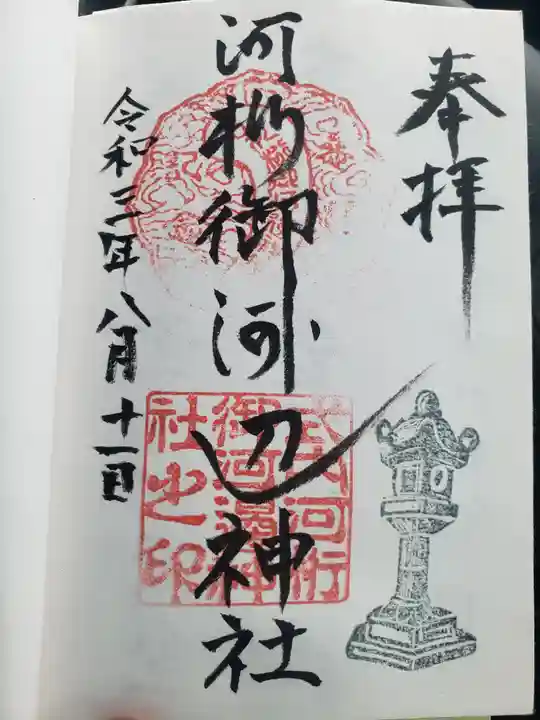 奉拝
河桁御河辺神社
式内河桁
御河邊神
社之印
令和三年八月十一日